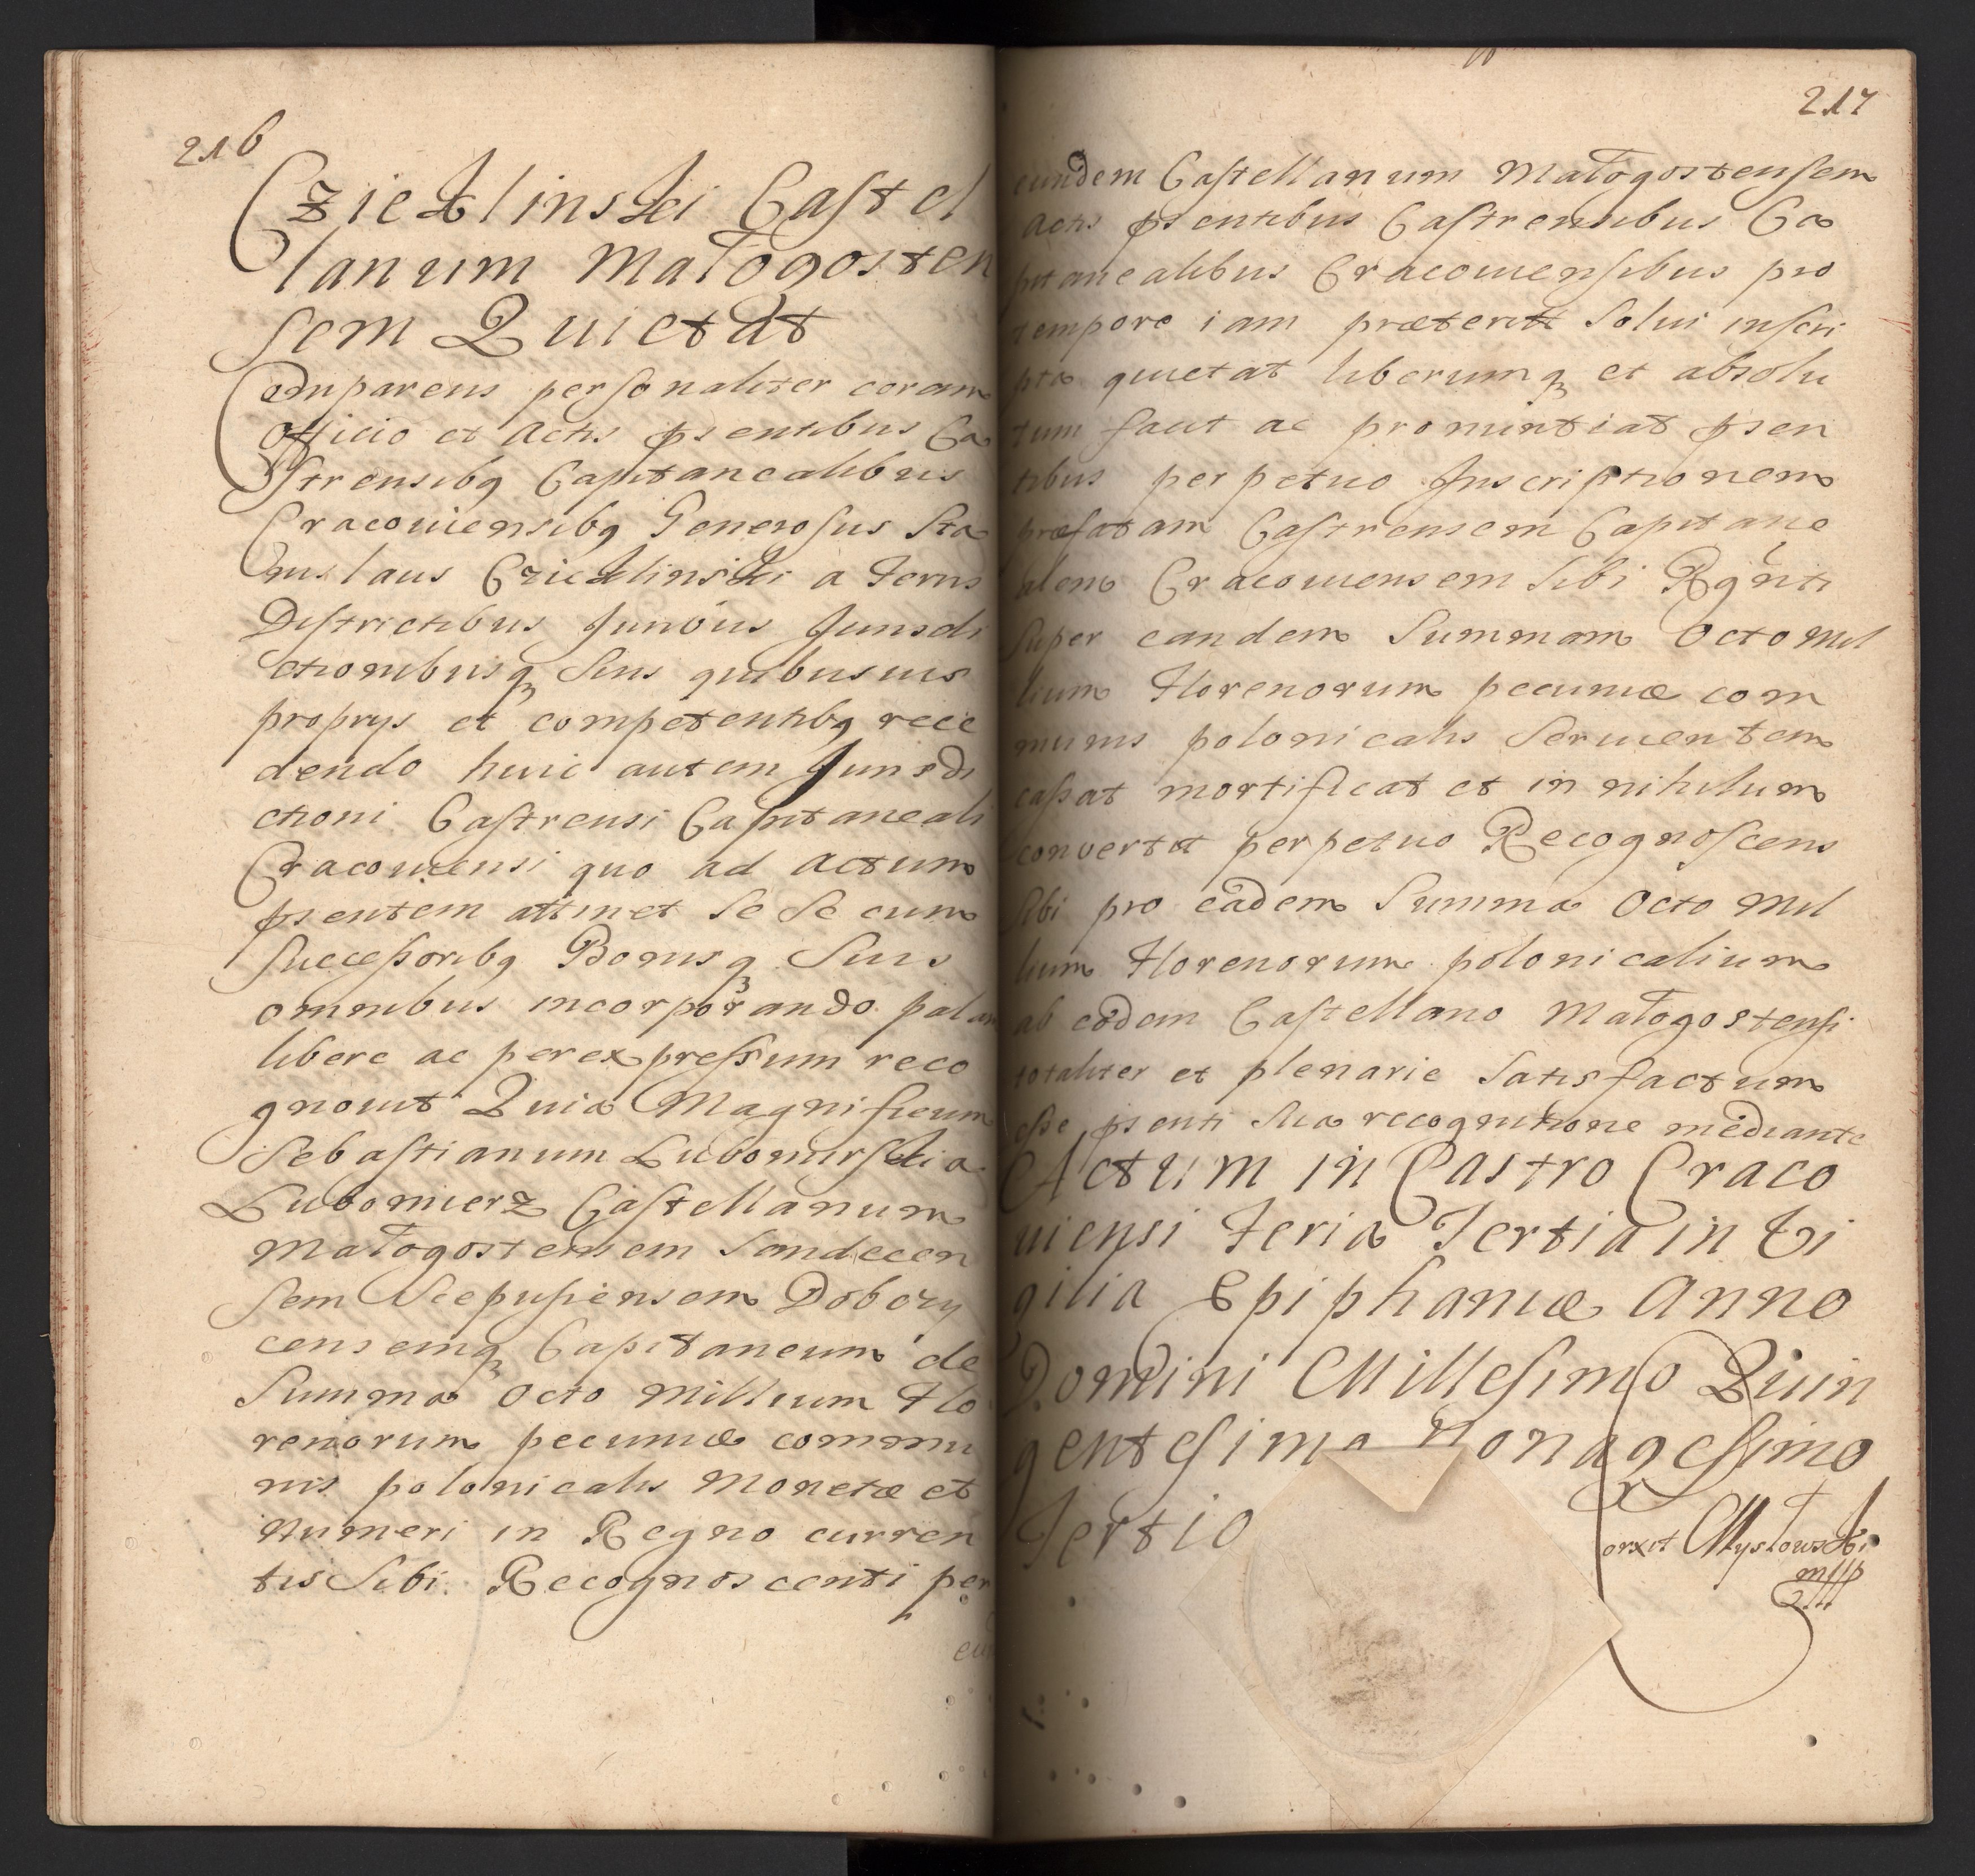 216
Czieklinski Castel
lanum Małogosten
sem Quietat
Comparens personaliter coram
Officio et Actis pntibus Ca
strensibq Capitanealibus
Cracouiensibq Generosus Sta
nislaus Czieklinski a Terris
Districtibus Juribus Jurisdi
ctionibusq Suis quibusuis
proprys et competentibq rece
dendo huic autem Jurisdi
ctioni Castrensi Capitaneali
Cracouiensi quo ad actum
psentem attinet Se Se cum
Successoribq Bonisq Suis
omnibus incorporando palam
libere ac per expressum reco
gnouit Quia Magnificum
Sebastianum Lubomirski a
Lubomierz Castellanum
Małogostensem Sandecen
sem Scepusiensem Dobczy
censemq Capitaneum de
Summa Octo Millium Flo
renorum pecuniæ commu
nis polonicalis Monetæ et
Numeri in Regno curren
tis Sibi Recognoscenti per
217
eundem Castellanum Małogostensem
Actis psentibus Castrensibus Ca
pitanealibus Cracouiensibus pro
tempore iam præterito Solui inscri
pta quietat liberumq et absolu
tum facit ac pronuntiat psen
tibus perpetuo Inscriptionem
præfatam Castrensem Capitane
alem Cracouiensem Sibi Rgnti
Super eandem Summam Octo Mil
lium Florenorum pecuniæ com
munis polonicalis Seruientem
cassat mortificat et in nihilum
convertit perpetuo Recognoscens
Sibi pro eadem Summa Octo Mil
lium Florenorum polonicalium
ab eodem Castellano Małogostensi
totaliter et plenarie Satisfactum
esse psenti Sua recognitione mediante
Actum in Castro Craco
uiensi Feria Tertia in Vi
gilia Epiphaniæ Anno
Domini Millesimo Quin
gentesimo Nonagesimo
Tertio
Mysłowski
mpp